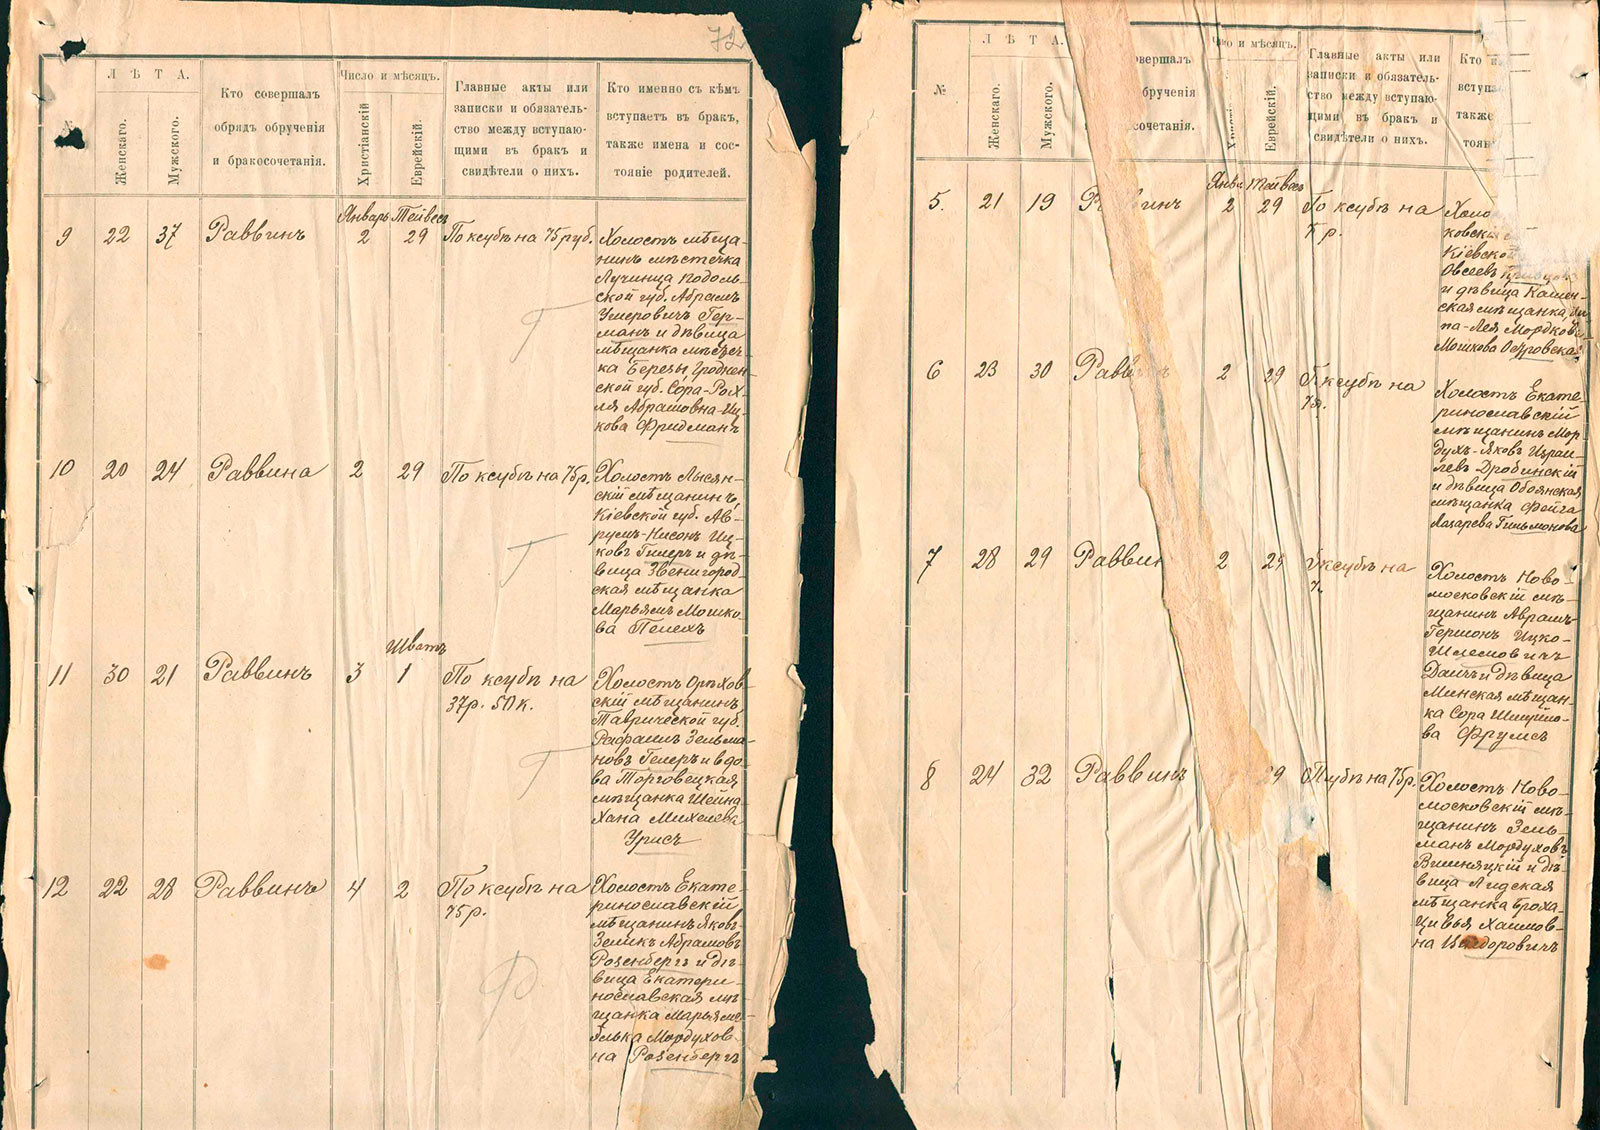 72
№
ЛѢТА.
Женскаго.
Мужского.
Кто совершалъ
обрядъ обрученія
и бракосочетанія.
Число и мѣсяцъ.
Христіанскій
Еврейскій.
Главные акты или
записки и обязатель-
ство между вступаю-
щими въ бракъ и
свидѣтели о нихъ.
Кто именно съ кѣмъ
вступаетъ въ бракъ,
также имена и сос-
тояніе родителей.
Январь Тейвесъ
9 22 37 Раввинъ 2 29 По ксубѣ на 75 руб.
Холостъ мѣща-
нинъ мѣстечка
Лучинца Подоль-
ской губ. Абрамъ
Умеровичъ Гер-
манъ и дѣвица
мѣщанка мѣстеч-
ка Березы, Гроднен-
ской губ. Сора-Рох-
ля Абрамовна-Иц-
кова Фридманъ
10 20 24 Раввина 2 29 По ксубѣ на 75р.
Холостъ Лысян-
скій мѣщанинъ,
Кіевской губ. Ав-
румъ-Нисонъ Иц-
ковъ Гилеръ и дѣ-
вица Звенигород-
ская мѣщанка
Марьямъ Мошко-
ва Пелехъ
Шватъ
11 30 21 Раввинъ 3 1 По ксубѣ на
37р. 50к.
Холостъ Орѣхов-
скій мѣщанинъ,
Таврической губ.
Рафаилъ Зельма-
новъ Гелеръ и вдо-
ва Торговецкая
мѣщанка Шейна-
Хана Михелева
Урисъ
12 22 28 Раввинъ 4 2 По ксубѣ на
75р.
Холостъ Екате-
ринославскій
мѣщанинъ Яковъ
Зеликъ Абрамовъ
Розенбергъ и дѣ-
вица Екатери-
нославская мѣ-
щанка Марьям-
Элька Мордухов-
на Розенбергъ
№
ЛѢТА.
Женскаго.
Мужского.
овершалъ
бручения
косочетанія.
ло и мѣсяцъ.
Еврейскій.
Главные акты или
записки и обязатель-
ство между вступаю-
щими въ бракъ и
свидѣтели о нихъ.
Кто и
вступа
также
тояні
Янва Тейвесъ
5. 21 19 Раввинъ 2 29 По ксубѣ на
р.
Холо
ковск
Кіевской
Овсеевъ
и дѣвица Камен-
ская мѣщанка,
па-Лея Мордков
Мошкова Островская
6 23 30 Раввинъ 2 29 П ксубѣ на
75.
Холостъ Екате-
ринославскій
мѣщанинъ Мор
духъ-Яковъ Израи-
левъ Дробинскій
и дѣвица Обоянская
мѣщанка Фейга
Лазарева Гильмонова
7 28 29 Раввин 2 29 ксубѣ на
7
Холостъ Ново-
московскій мѣ-
щанинъ Авраамъ-
Гершонъ Ицко-
Шлемовичъ
Данчъ и дѣвица
Минская мѣщан-
ка Сора Шмуйло-
ва Фрумсъ
8 24 32 Раввинъ 29 П субѣ на 75р.
Холостъ Ново-
московскій мѣ-
щанинъ Зель-
манъ Мордуховъ
Вишняцкій и дѣ-
вица Лидская
мѣщанка Броха-
Цивья Хаимов-
на Исидоровичъ